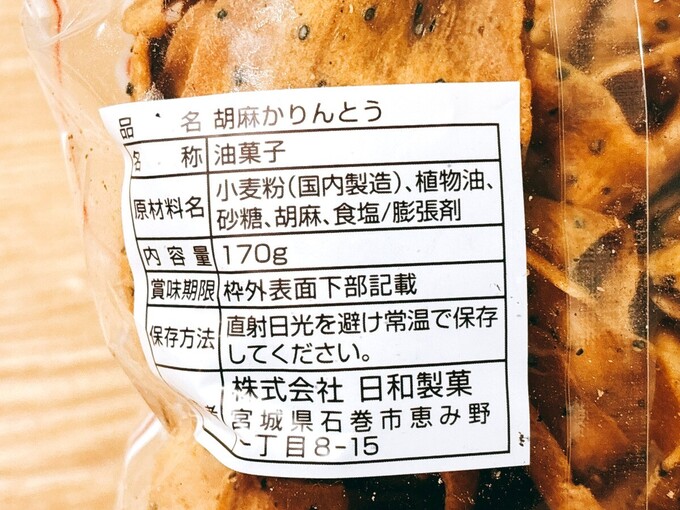 品名 胡麻かりんとう
名称 油菓子
原材料名 小麦粉(国内製造)、植物油、
砂糖、胡麻、食塩/膨張剤
内容量 170g
賞味期限 枠外表面下部記載
保存方法 直射日光を避け常温で保存
してください。
者 株式会社 日和製菓
宮城県石巻市恵み野
丁目8-15